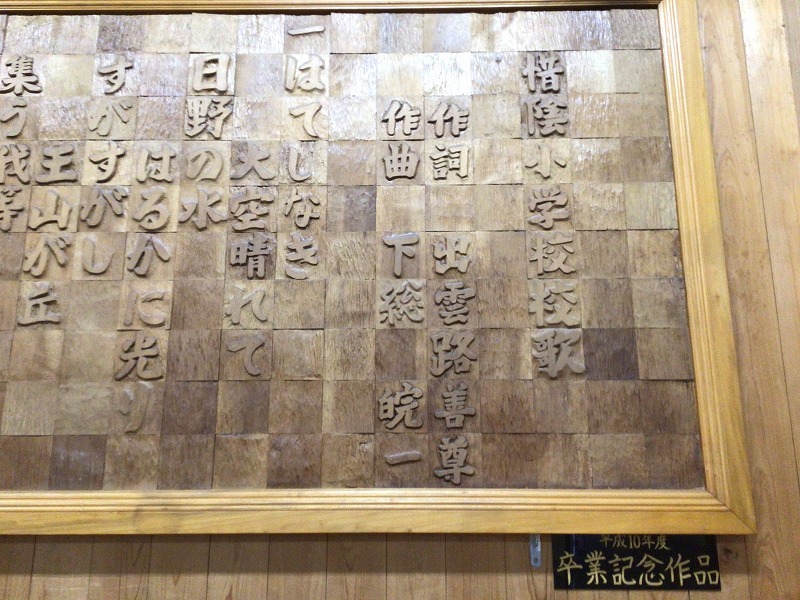 惜陰小学校校歌
作詞 出雲路善尊
作曲 下総 皖一
一 はてしなき
大空晴れて
日野の水
はるかに光り
すがすがし
王山が丘
集う我等
平成10年度
卒業記念作品